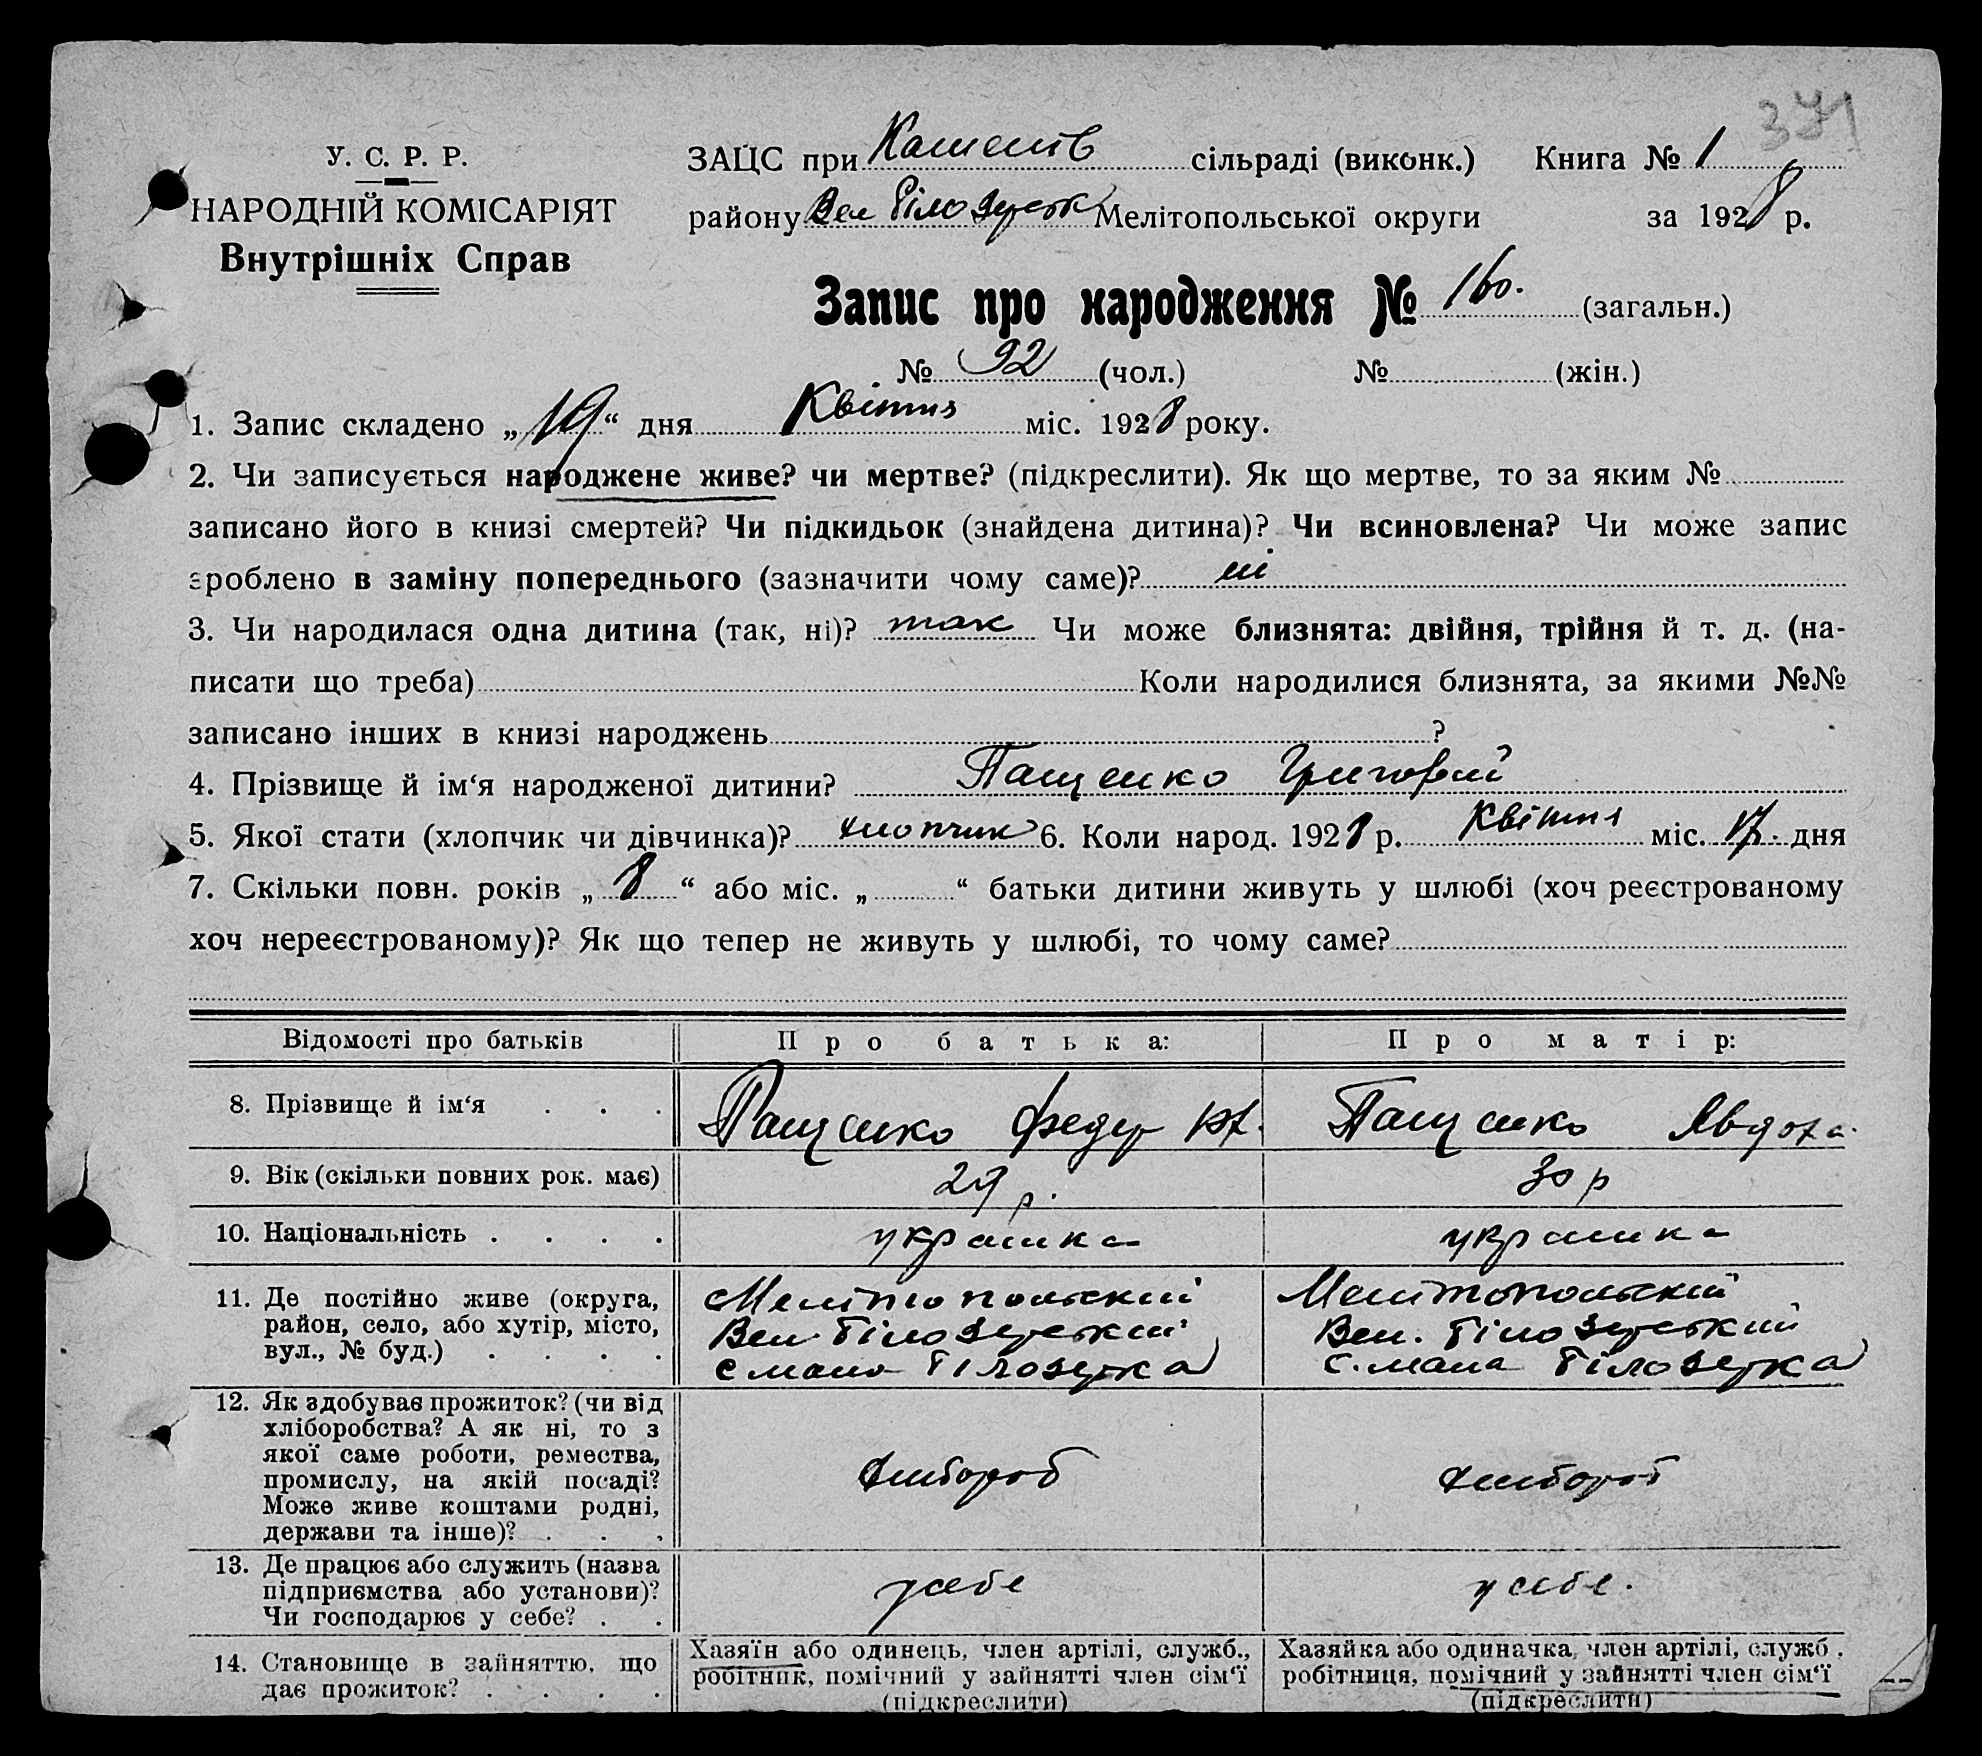 371
У. С. Р. Р.
НАРОДНІЙ КОМІСАРІЯТ
Внутрішніх Справ
ЗАЦС при сільраді (виконк.) Книга № 1
району Вел Білозерськ Мелітопольської округи за 1928 р.
Запис про народження № 160. (загальн.)
№ 92 (чол.) № (жін.)
1. Запис складено „19“ дня Квітня міс. 1928 року.
2. Чи записується народжене живе? чи мертве? (підкреслити). Як що мертве, то за яким №
записано його в книзі смертей? Чи підкидьок (знайдена дитина)? Чи всиновлена? Чи може запис
зроблено в заміну попереднього (зазначити чому саме)? ні
3. Чи народилася одна дитина (так, ні)? так Чи може близнята: двійня, трійня й т. д. (на-
писати що треба) Коли народилися близнята, за якими №№
записано інших в книзі народжень ?
4. Прізвище й ім‘я народженої дитини? Пащенко Григорій
5. Якої стати (хлопчик чи дівчинка)? хлопчик 6. Коли народ. 1928 р. Квітня міс. 17. дня
7. Скільки повн. років „ 8 “ або міс. „ “ батьки дитини живуть у шлюбі (хоч реєстрованому
хоч нереєстрованому)? Як що тепер не живуть у шлюбі, то чому саме?
Відомості про батьків Про батька: Про матір:
8. Прізвище й ім‘я . . . Пащенко Федір Пащенко Явдоха
9. Вік (скільки повних рок. має) 29 р. 30 р
10. Національність . . . . україінка україінка
11. Де постійно живе (округа,
район, село, або хутір, місто,
вул., № буд.) . . . .
Мелітопольский
Вел. Білозерський
с мала Білозерка
Мелітопольский
Вел. Білозерський
с. мала Білозерка
12. Як здобуває прожиток? (чи від
хліборобства? А як ні, то з
якої саме роботи, ремества,
промислу, на якій посаді?
Може живе коштами родні,
держави та інше)? . . .
хлібороб хлібороб
13. Де працює або служить (назва
підприємства або установи)?
Чи господарює у себе? . .
у себе у себе.
14. Становище в зайняттю, що
дає прожиток? . . . .
Хазяїн або одинець, член артілі, служб.,
робітник, помічний у зайнятті член сім‘ї
(підкреслити)
Хазяйка або одиначка, член артілі, служб.
робітниця, помічний у зайнятті член сім‘ї
(підкреслити)